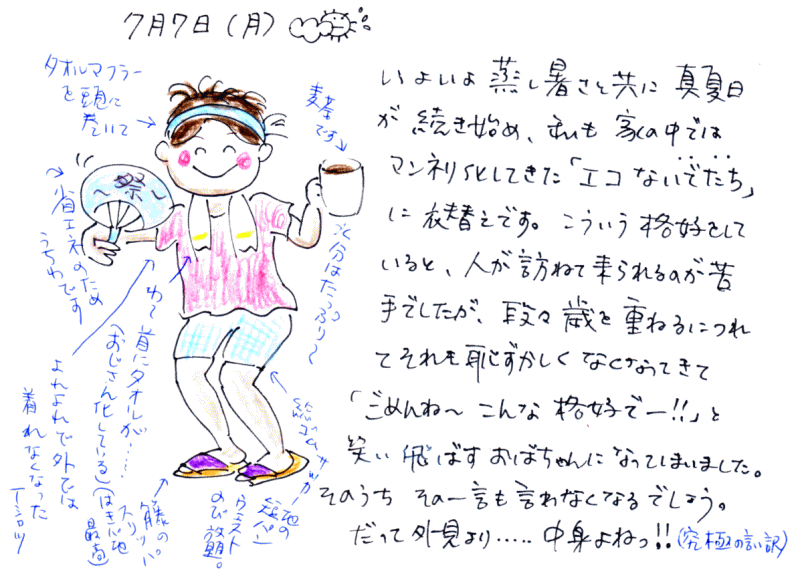 7月7日(月)
いよいよ蒸し暑さと共に真夏日
が続き始め、私も家の中では
マンネリ化してきた「エコないでたち」
に衣替えです。こういう格好をして
いると、人が訪ねて来られるのが苦
手でしたが、段々歳を重ねるにつれ
てそれも恥ずかしくなくなってきて
「ごめんね〜こんな格好でー!!」と
笑い飛ばすおばちゃんになってしまいました。
そのうちその一言も言わなくなるでしょう。
だって外見より……中身よねっ!!(究極の言い訳)
タオルマフラー
を頭に
巻いて
麦茶
です
水分はたっぷり〜
〜祭〜
省エネのため
うちわです
わ〜首にタオルが……
(おじさん化している)
よれよれで外では
着れなくなった
Tシャツ
籐の
スリッパ
(はき心地
最高)
綿ゴムナッツ
地の
短パン
ウエスト
のび放題。